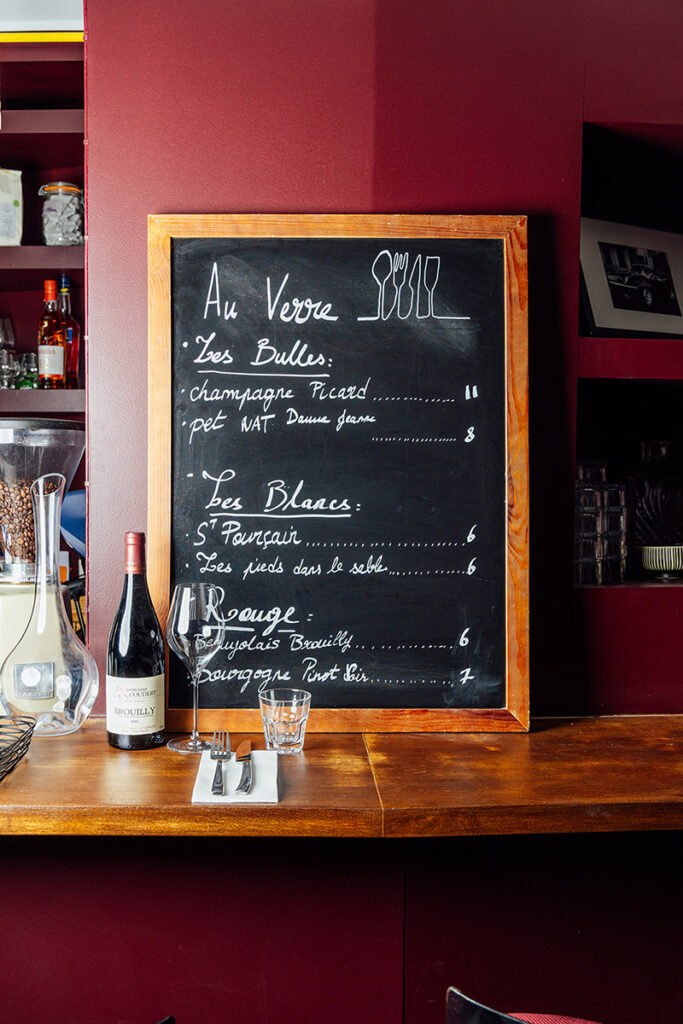 Au Verre
• Les Bulles:
• champagne Picard .................. 11
• pet NAT Dame Jeanne .................. 8
• Les Blancs:
• St Pourçain .................. 6
• Les pieds dans le sable .................. 6
Rouge:
Beaujolais Brouilly .................. 6
Bourgogne Pinot Noir .................. 7
DOMAINE
COUDERT
BROUILLY